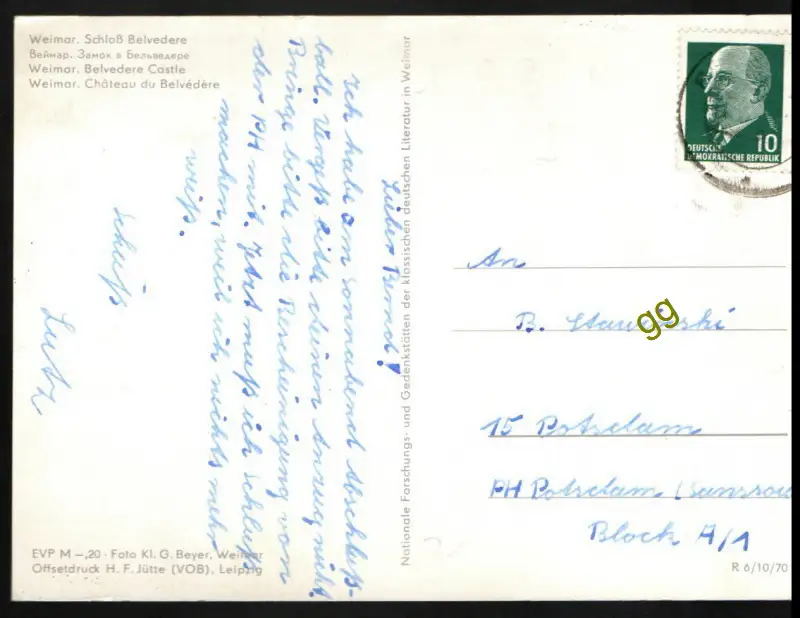 Weimar. Schloß Belvedere
Веймар. Замок в Бельведере
Weimar. Belvedere Castle
Weimar. Château du Belvédère
Lieber Bernd!
Ich habe am Sonnabend Abschluß-
ball. Vergiß bitte deinen Anzug nicht.
Bringe bitte die Bescheinigung von
der PH mit. Jetzt muß ich Schluß
machen, weil ich nichts mehr
weiß.
Schluß
Lutz
EVP M –,20 · Foto Kl. G. Beyer, Weimar
Offsetdruck H. F. Jütte (VOB), Leipzig
Nationale Forschungs- und Gedenkstätten der klassischen deutschen Literatur in Weimar
10
DEUTSCHE
DEMOKRATISCHE REPUBLIK
An
B.
gg
15 Potsdam
PH Potsdam (Sanssou
Block A/1
R 6/10/70